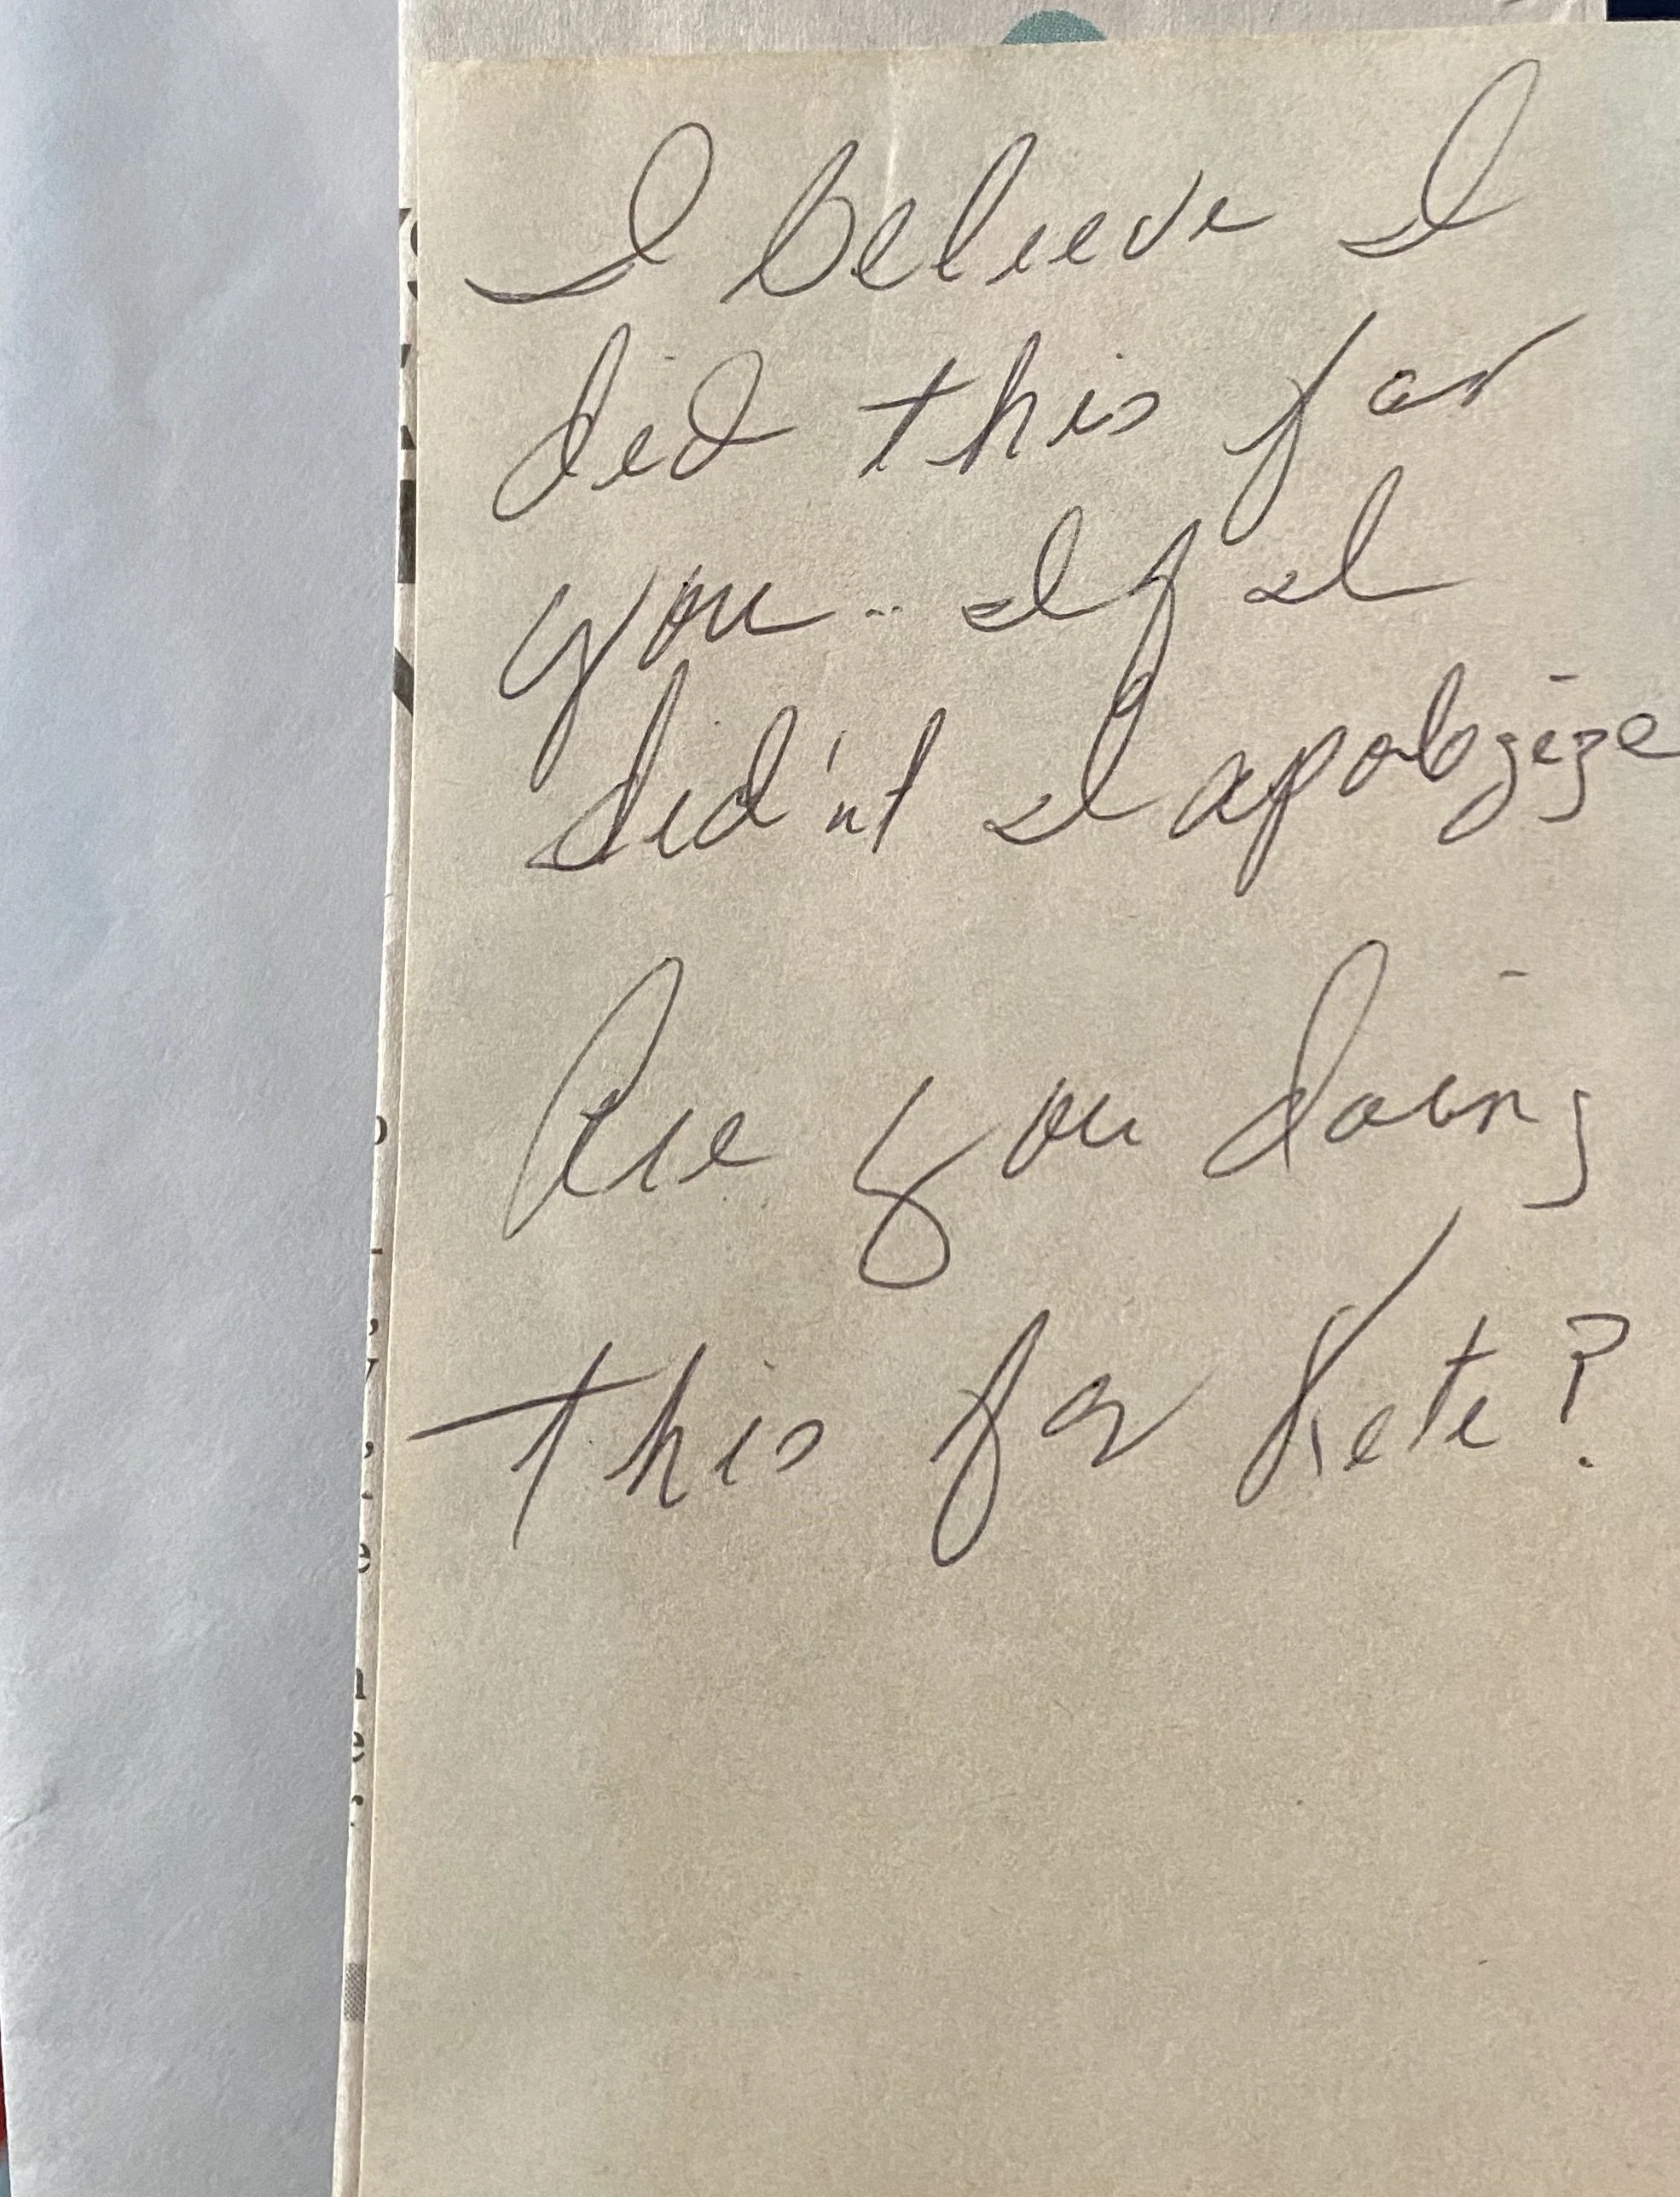 I believe I
did this for
you.. If I
did'nt I apologize
Are you doing
this for Kete?